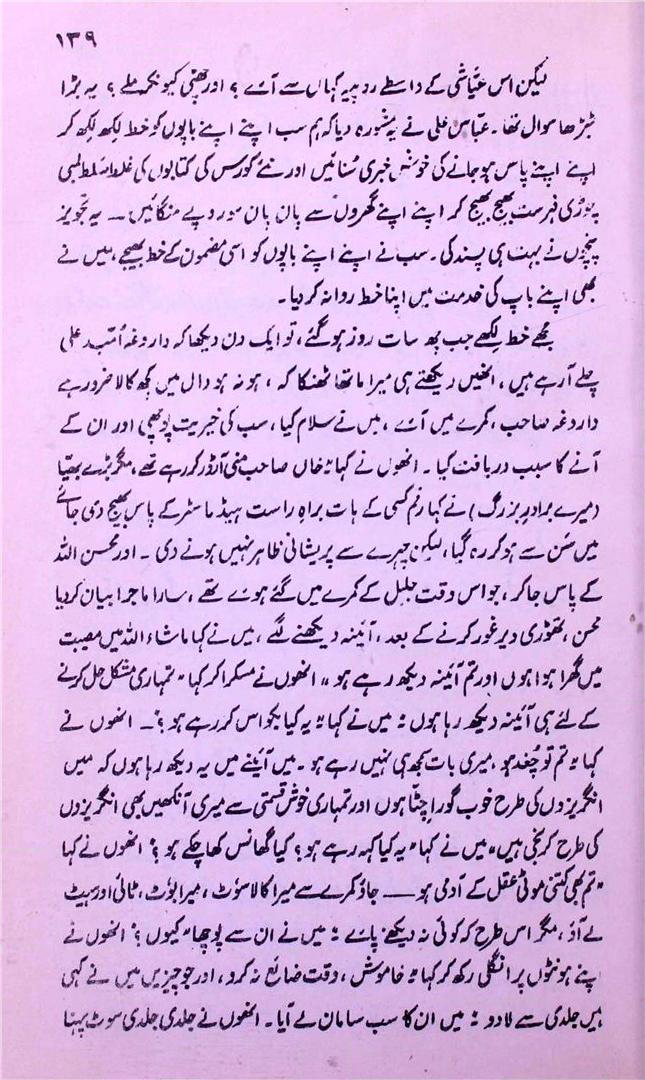 ۱۳۹
لیکن اس عیّاشی کے واسطے روپیہ کہاں سے آئے ؟ اور چھٹی کیونکر ملے ؟ یہ بڑا
ٹیڑھا سوال تھا ۔ عبّاس علی نے یہ مشورہ دیا کہ ہم سب اپنے اپنے باپوں کو خط لکھ لکھ کر
اپنے اپنے پاس ہو جانے کی خوش خبری سُنائیں اور نئے کورس کی کتابوں کی غلط سَلط لمبی
چوڑی فہرست بھیج بھیج کر اپنے اپنے گھروں سے پان پان سو روپے منگائیں ۔ یہ تجویز
پنچوں نے بہت ہی پسند کی ۔ سب نے اپنے اپنے باپوں کو اسی مضمون کے خط بھیجے ، میں نے
بھی اپنے باپ کی خدمت میں اپنا خط روانہ کر دیا ۔
مجھے خط لکھے جب چھ سات روز ہو گئے ، تو ایک دن دیکھا کہ داروغہ اُمّید علی
چلے آ رہے ہیں ، انھیں دیکھتے ہی میرا ماتھا ٹھنکا کہ ، ہو نہ ہو دال میں کچھ کالا ضرور ہے
داروغہ صاحب ، کمرے میں آئے ، میں نے سلام کیا ، سب کی خیریت پوچھی اور ان کے
آنے کا سبب دریافت کیا ۔ انھوں نے کہا " خاں صاحب منی آرڈر کر رہے تھے ، مگر بڑے بھیّا
(میرے برادرِ بزرگ) نے کہا رقم کسی کے ہات براہِ راست ہیڈ ماسٹر کے پاس بھیج دی جائے
میں سُن سے ہو کر رہ گیا ، لیکن چہرے سے پریشانی ظاہر نہیں ہونے دی ۔ اور محسن اللہ
کے پاس جا کر ، جو اس وقت جلیل کے کمرے میں گئے ہوئے تھے ، سارا ماجرا بیان کر دیا
محسن ، تھوڑی دیر غور کرنے کے بعد ، آئینہ دیکھنے لگے ، میں نے کہا ماشاء اللہ میں مصیبت
میں گھرا ہوا ہوں اور تم آئینہ دیکھ رہے ہو " انھوں نے مسکرا کر کہا " تمہاری مشکل حل کرنے
کے لئے ہی آئینہ دیکھ رہا ہوں " میں نے کہا " یہ کیا بکواس کر رہے ہو ؟" ۔ انھوں نے
کہا " تم تو چُغد ہو ، میری بات سمجھ ہی نہیں رہے ہو ۔ میں آئینے میں یہ دیکھ رہا ہوں کہ میں
انگریزوں کی طرح خوب گورا چٹّا ہوں اور تمہاری خوش قسمتی سے میری آنکھیں بھی انگریزوں
کی طرح کرنجی ہیں " میں نے کہا " یہ کیا کہہ رہے ہو ؟ کیا گھانس کھا چکے ہو ؟" انھوں نے کہا
" تم بھی کتنی موٹی عقل کے آدمی ہو —— جاؤ کمرے سے میرا کالا سُوٹ ، میرا بُوٹ ، ٹائی اور ہیٹ
لے آؤ ، مگر اس طرح کہ کوئی نہ دیکھنے پائے " میں نے ان سے پوچھا " کیوں ؟" انھوں نے
اپنے ہونٹوں پر انگلی رکھ کر کہا " خاموش ، وقت ضائع نہ کرو ، اور جو چیزیں میں نے کہی
ہیں جلدی سے لا دو " میں ان کا سب سامان لے آیا ۔ انھوں نے جلدی جلدی سوٹ پہنا